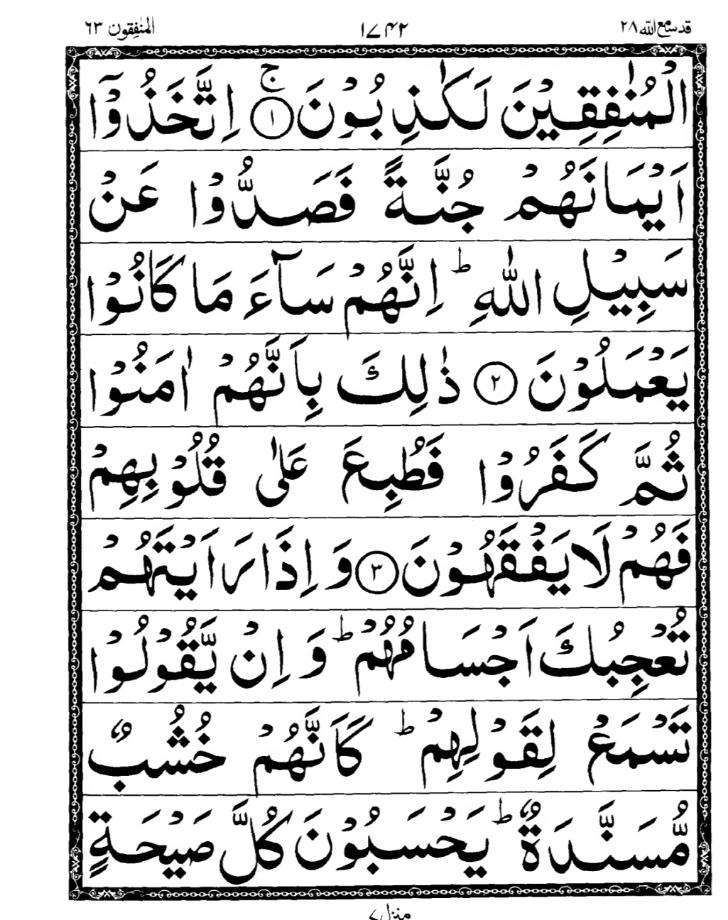 المنٰفقون ٦٣ ١٧٤٢ قد سمع الله ٢٨
الْمُنٰفِقِيْنَ لَكٰذِبُوْنَ ۚ ﴿١﴾ اِتَّخَذُوْۤا
اَيْمَانَهُمْ جُنَّةً فَصَدُّوْا عَنْ
سَبِيْلِ اللّٰهِ ؕ اِنَّهُمْ سَآءَ مَا كَانُوْا
يَعْمَلُوْنَ ﴿٢﴾ ذٰلِكَ بِاَنَّهُمْ اٰمَنُوْا
ثُمَّ كَفَرُوْا فَطُبِعَ عَلٰى قُلُوْبِهِمْ
فَهُمْ لَا يَفْقَهُوْنَ ﴿٣﴾ وَ اِذَا رَاَيْتَهُمْ
تُعْجِبُكَ اَجْسَامُهُمْ ؕ وَ اِنْ يَّقُوْلُوْا
تَسْمَعْ لِقَوْلِهِمْ ؕ كَاَنَّهُمْ خُشُبٌ
مُّسَنَّدَةٌ ؕ يَحْسَبُوْنَ كُلَّ صَيْحَةٍ
منزل ٧